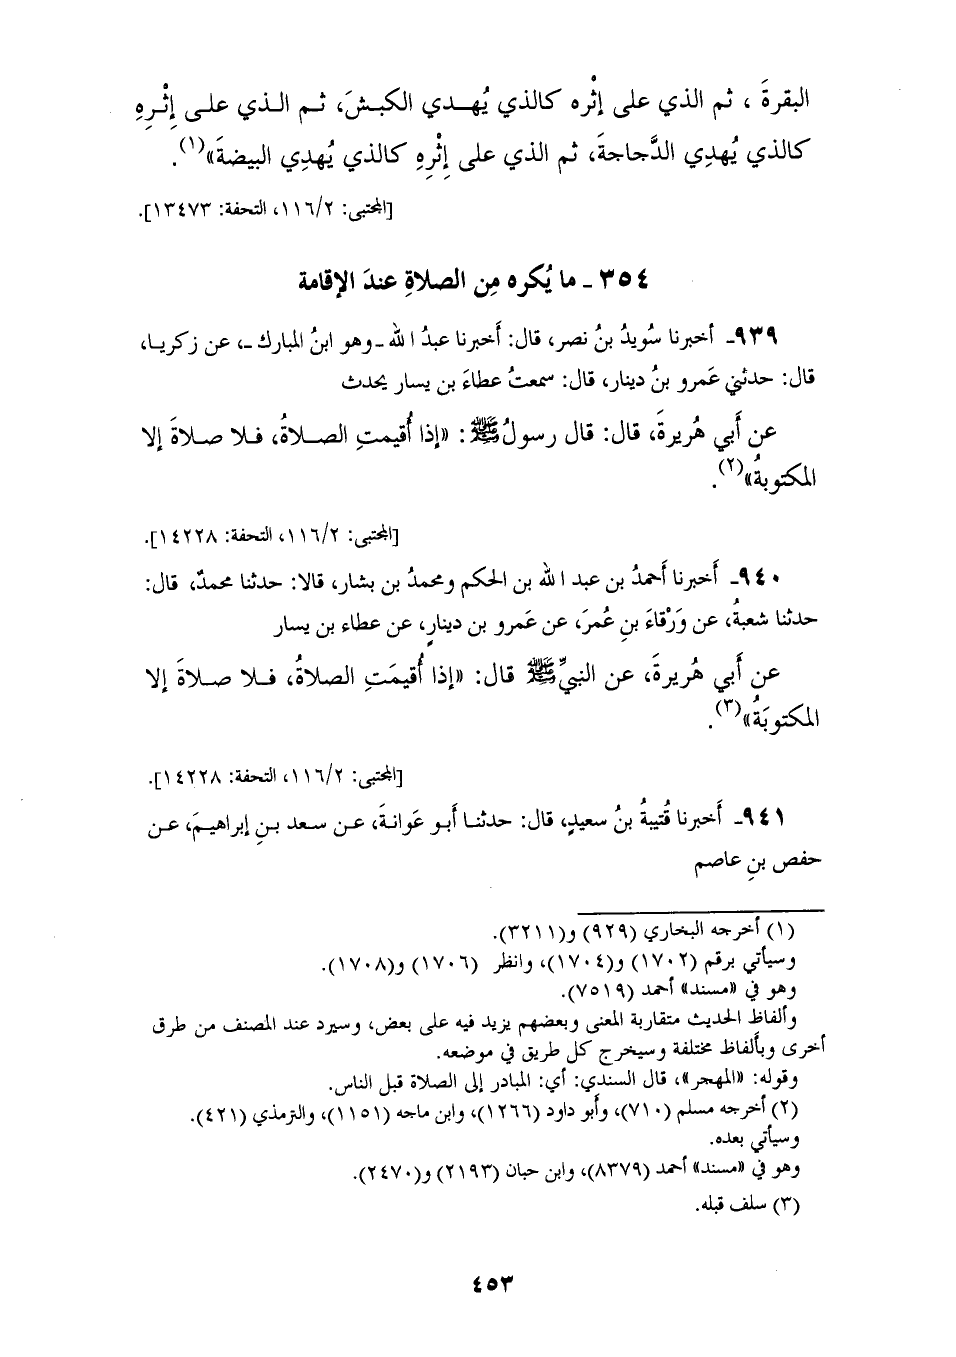 البقرةَ ، ثم الذي على إثْره كالذي يُهـدي الكبـشَ، ثـم الـذي علـى إِثْـرِهِ
كالذي يُهدِي الدَّجاجةَ، ثم الذي على إِثْرِهِ كالذي يُهدِي البيضةَ»(١).
[المجتبى: ١١٦/٢، التحفة: ١٣٤٧٣].
٣٥٤ ـ ما يُكره مِن الصلاةِ عندَ الإقامة
٩٣٩ـ أخبرنا سُويدُ بنُ نصر، قال: أَخبرنا عبدُ الله ـ وهو ابنُ المبارك ـ، عن زكريـا،
قال: حدثني عَمرو بنُ دينار، قال: سمعتُ عطاءَ بن يسار يحدث
عن أَبي هُريرةَ، قال: قال رسولُ ﷺ: «إذا أُقيمتِ الصـلاةُ، فـلا صـلاةَ إلا
المكتوبةُ»(٢).
[المجتبى: ١١٦/٢، التحفة: ١٤٢٢٨].
٩٤٠ـ أَخبرنا أَحمدُ بن عبد الله بن الحكم ومحمدُ بن بشار، قالا: حدثنا محمدٌ، قال:
حدثنا شعبةُ، عن وَرْقاءَ بنِ عُمرَ، عن عَمرو بن دينارٍ، عن عطاء بن يسار
عن أَبي هُريرةَ، عن النبيِّ ﷺ قال: «إذا أُقيمَتِ الصلاةُ، فـلا صـلاةَ إلا
المكتوبَةُ»(٣).
[المجتبى: ١١٦/٢، التحفة: ١٤٢٢٨].
٩٤١ـ أَخبرنا قُتيبةُ بنُ سعيدٍ، قال: حدثنـا أَبـو عَوانـةَ، عـن سـعد بـنِ إبراهيـمَ، عـن
حفص بنِ عاصم
(١) أخرجه البخاري (٩٢٩) و(٣٢١١).
وسيأتي برقم (١٧٠٢) و(١٧٠٤)، وانظر (١٧٠٦) و(١٧٠٨).
وهو في «مسند» أحمد (٧٥١٩).
وألفاظ الحديث متقاربة المعنى وبعضهم يزيد فيه على بعض، وسيرد عند المصنف من طرق
أخرى وبألفاظ مختلفة وسيخرج كل طريق في موضعه.
وقوله: «المهجر»، قال السندي: أي: المبادر إلى الصلاة قبل الناس.
(٢) أخرجه مسلم (٧١٠)، وأبو داود (١٢٦٦)، وابن ماجه (١١٥١)، والترمذي (٤٢١).
وسيأتي بعده.
وهو في «مسند» أحمد (٨٣٧٩)، وابن حبان (٢١٩٣) و(٢٤٧٠).
(٣) سلف قبله.
٤٥٣